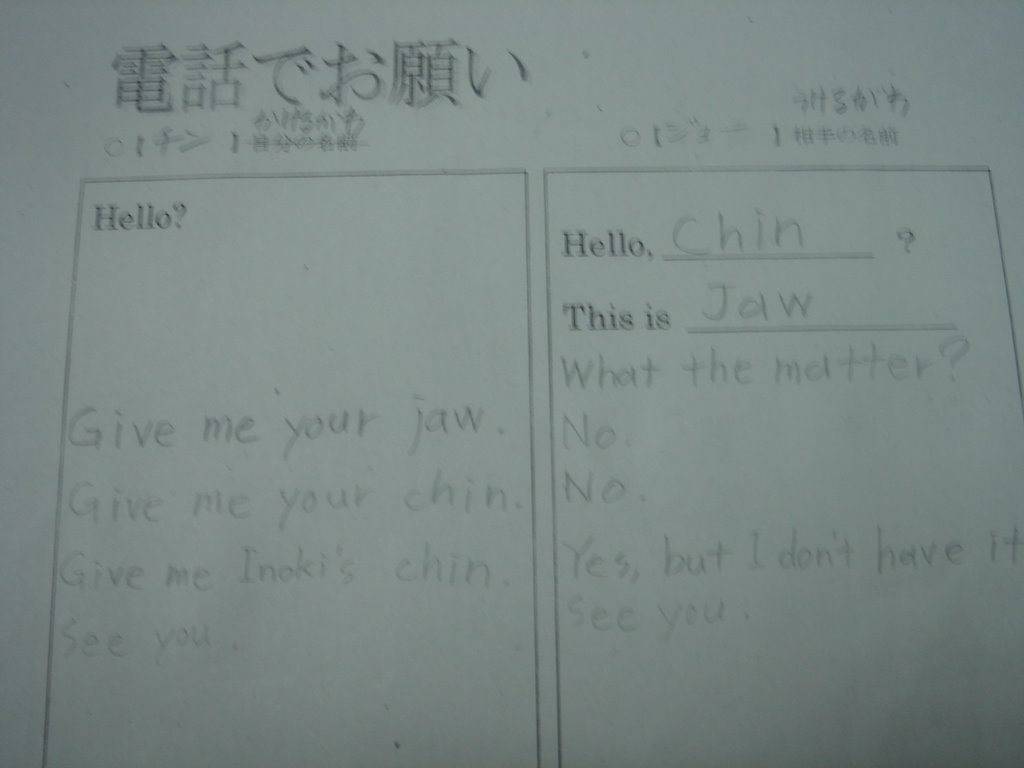 電話でお願い
○ 1 チン 1 かけるがわ 自分の名前
○ 1 ジョー 1 うけるがわ 相手の名前
Hello?
Give me your jaw.
Give me your chin.
Give me Inoki's chin.
See you.
Hello, Chin ?
This is Jaw
What the matter?
No.
No.
Yes, but I don't have it
See you.